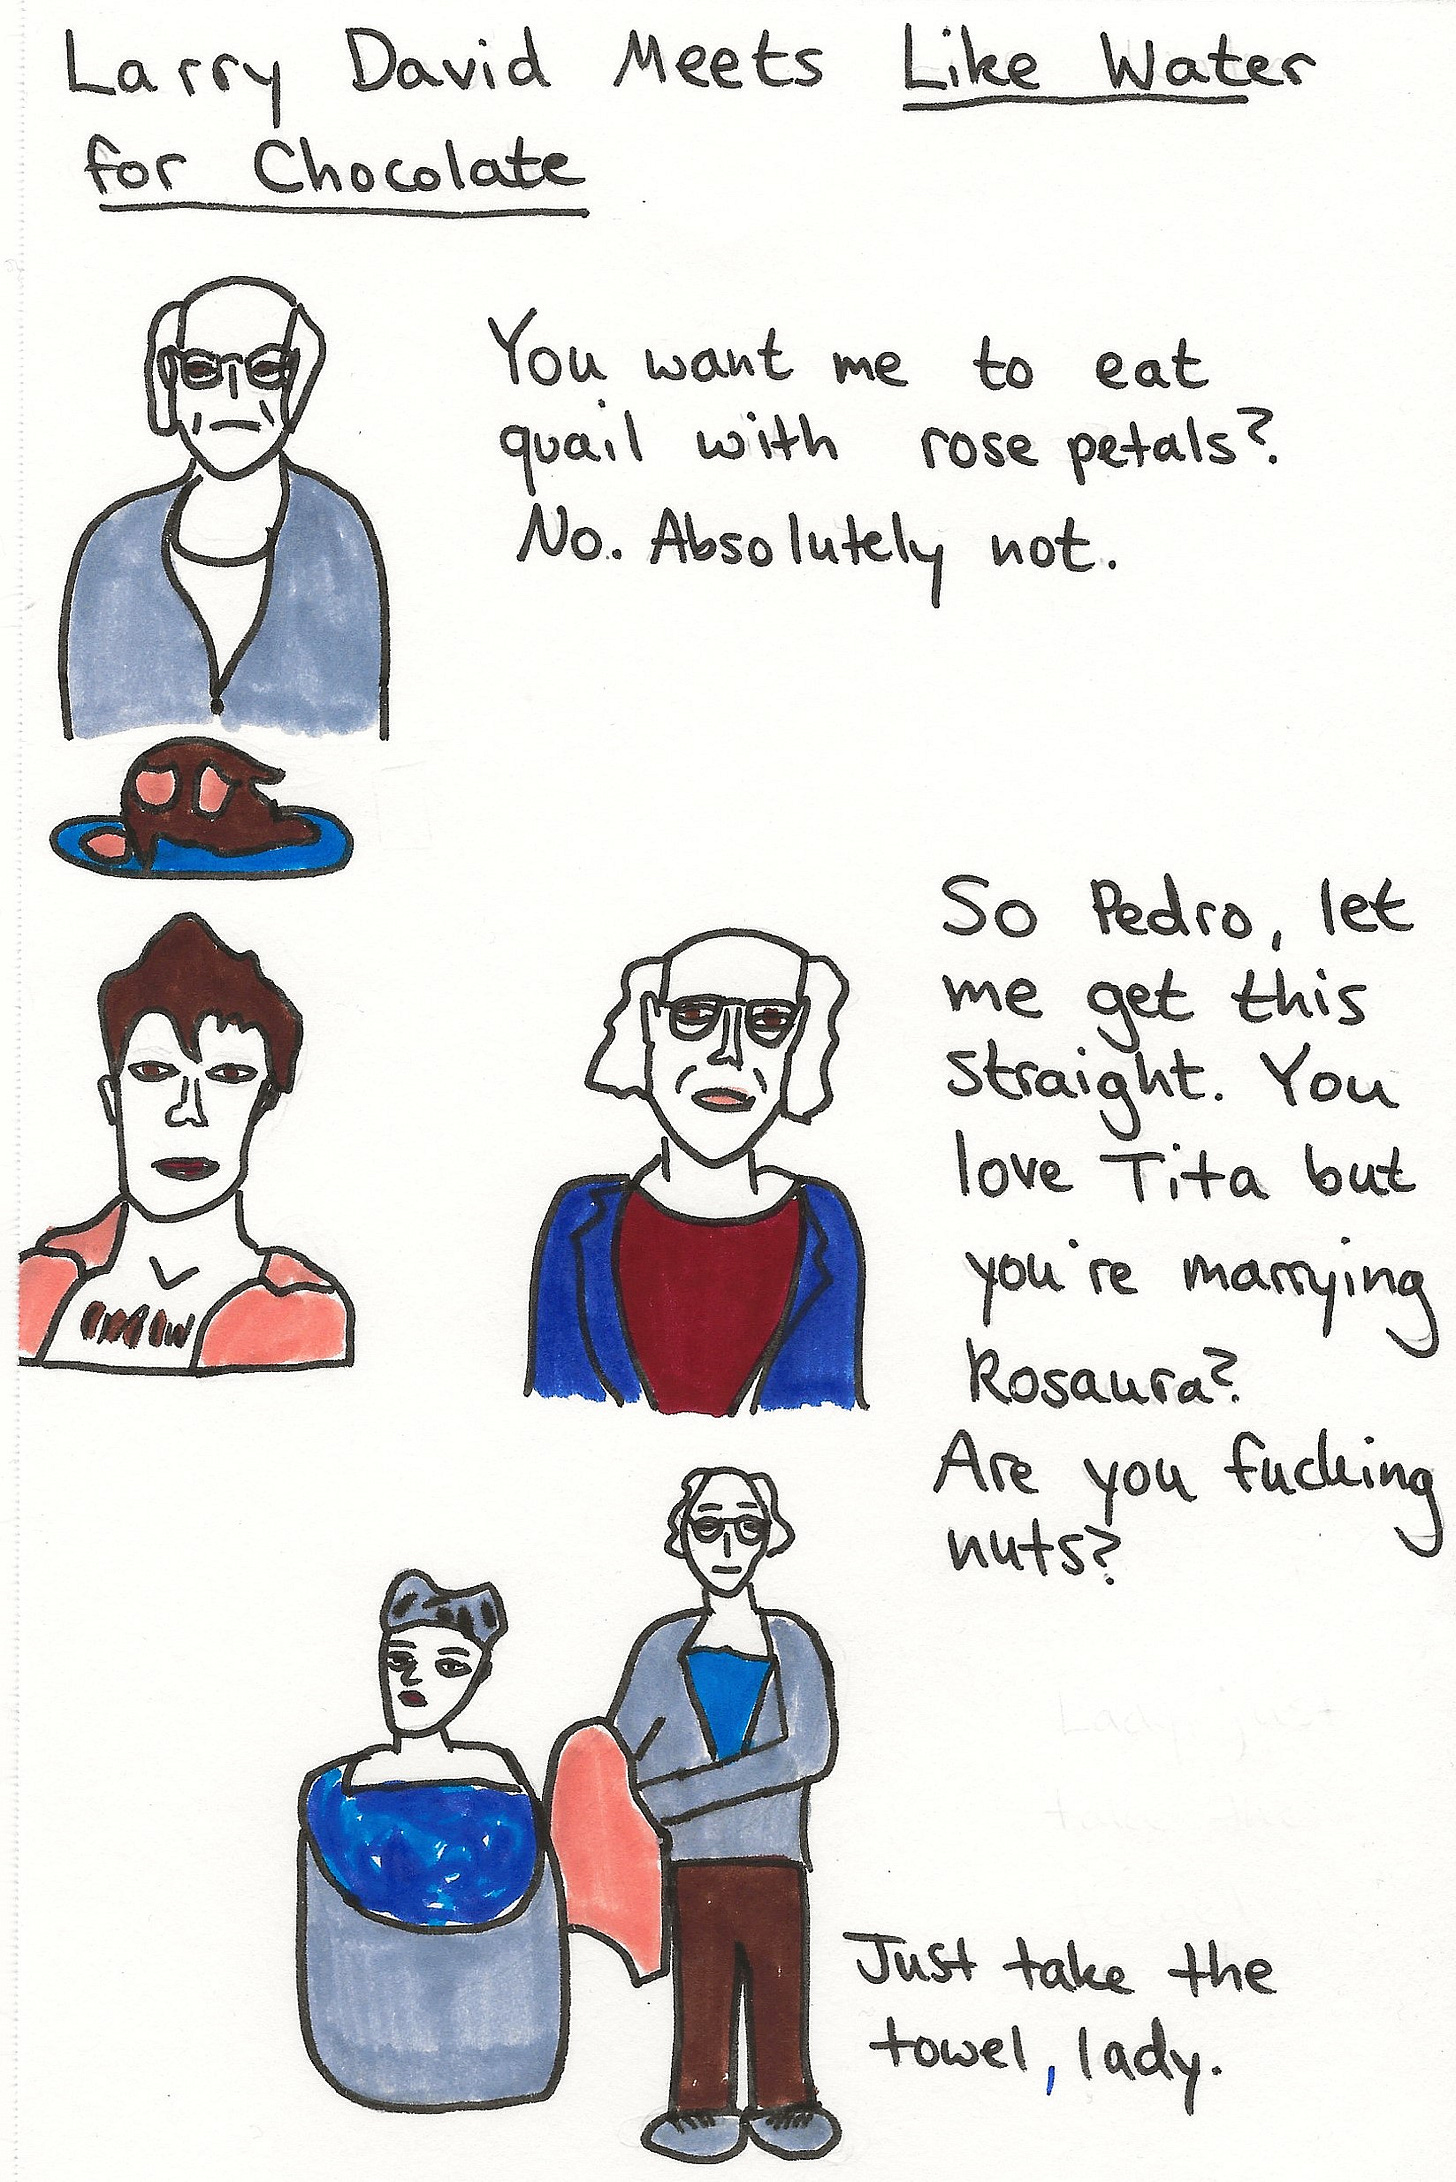 Larry David Meets Like Water
for Chocolate
You want me to eat
quail with rose petals?
No. Absolutely not.
So Pedro, let
me get this
straight. You
love Tita but
you're marrying
Rosaura?
Are you fucking
nuts?
Just take the
towel, lady.